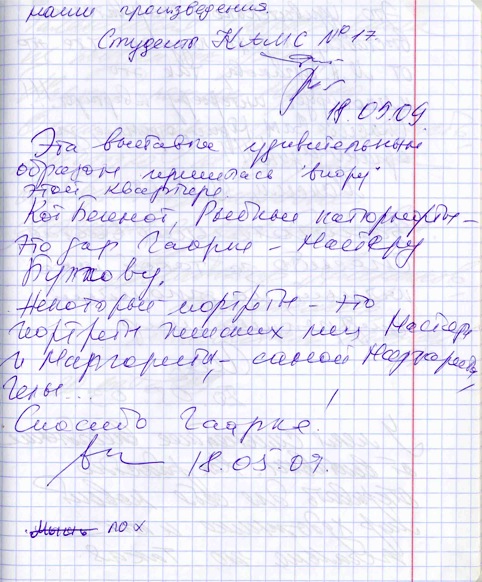 наши произведения.
Студенты КАМС № 17.
18 05 09.
Эта выставка удивительным
образом пришлась "впору"
этой квартире.
Кот Бегемот, Рыбный натюрморты –
это дар Гаори – Мастеру
Булгакову.
Некоторые портреты – это
портреты женских лиц Мастера
и Маргариты, – самой Маргариты,
Геллы...
Спасибо Гаорке!
18.05.09.
Мышь лох